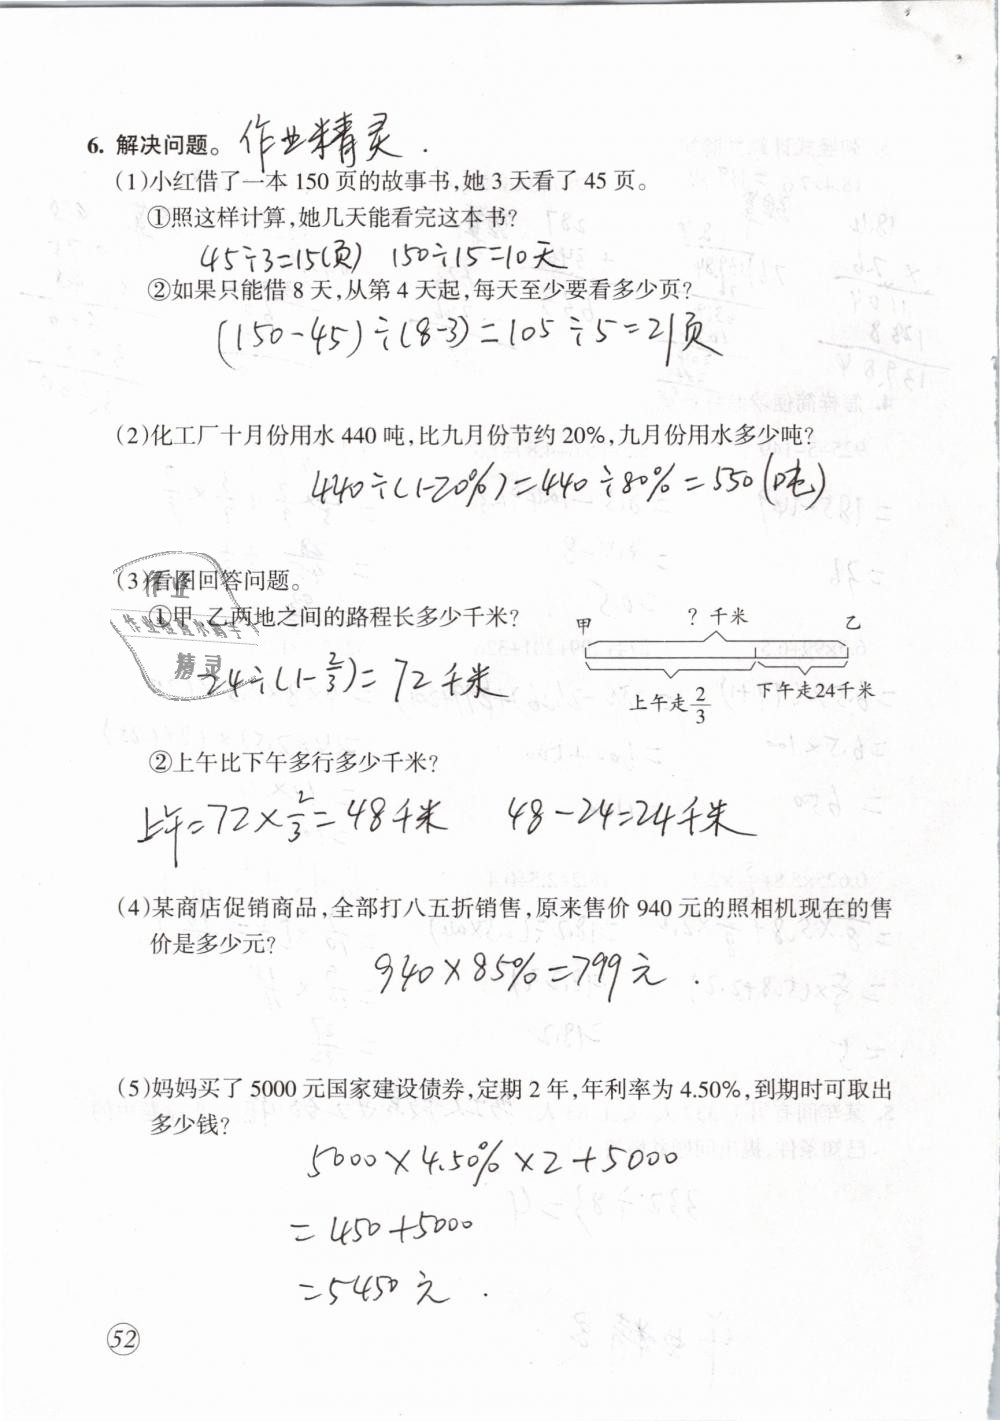 6. 解决问题。作业精灵.
(1)小红借了一本 150 页的故事书,她 3 天看了 45 页。
①照这样计算,她几天能看完这本书?
45÷3=15(页) 150÷15=10天
②如果只能借 8 天,从第 4 天起,每天至少要看多少页?
(150-45)÷(8-3)=105÷5=21页
(2)化工厂十月份用水 440 吨,比九月份节约 20%,九月份用水多少吨?
440÷(1-20%)=440÷80%=550(吨)
(3)看图回答问题。
作业
①甲、乙两地之间的路程长多少千米?
精灵
24÷(1-2/3)=72千米
甲 ?千米 乙
上午走2/3 下午走24千米
②上午比下午多行多少千米?
上午=72×2/3=48千米 48-24=24千米
(4)某商店促销商品,全部打八五折销售,原来售价 940 元的照相机现在的售
价是多少元?
940×85%=799元.
(5)妈妈买了 5000 元国家建设债券,定期 2 年,年利率为 4.50%,到期时可取出
多少钱?
5000×4.50%×2+5000
=450+5000
=5450元.
52